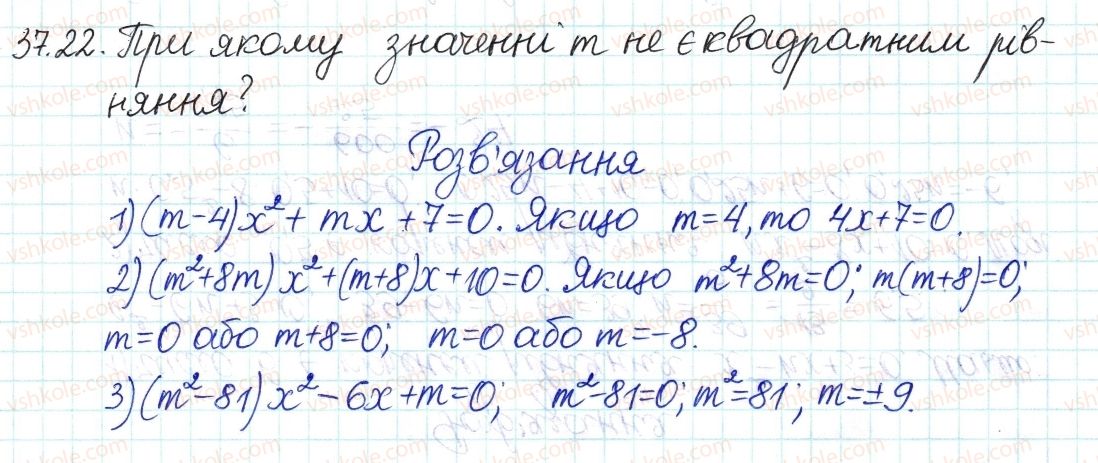 37.22. При якому значенні m не є квадратним рів-
няння?
Розв'язання
1) (m-4)x²+mx+7=0. Якщо m=4, то 4x+7=0.
2) (m²+8m)x²+(m+8)x+10=0. Якщо m²+8m=0; m(m+8)=0;
m=0 або m+8=0; m=0 або m=-8.
3) (m²-81)x²-6x+m=0; m²-81=0; m²=81; m=±9.